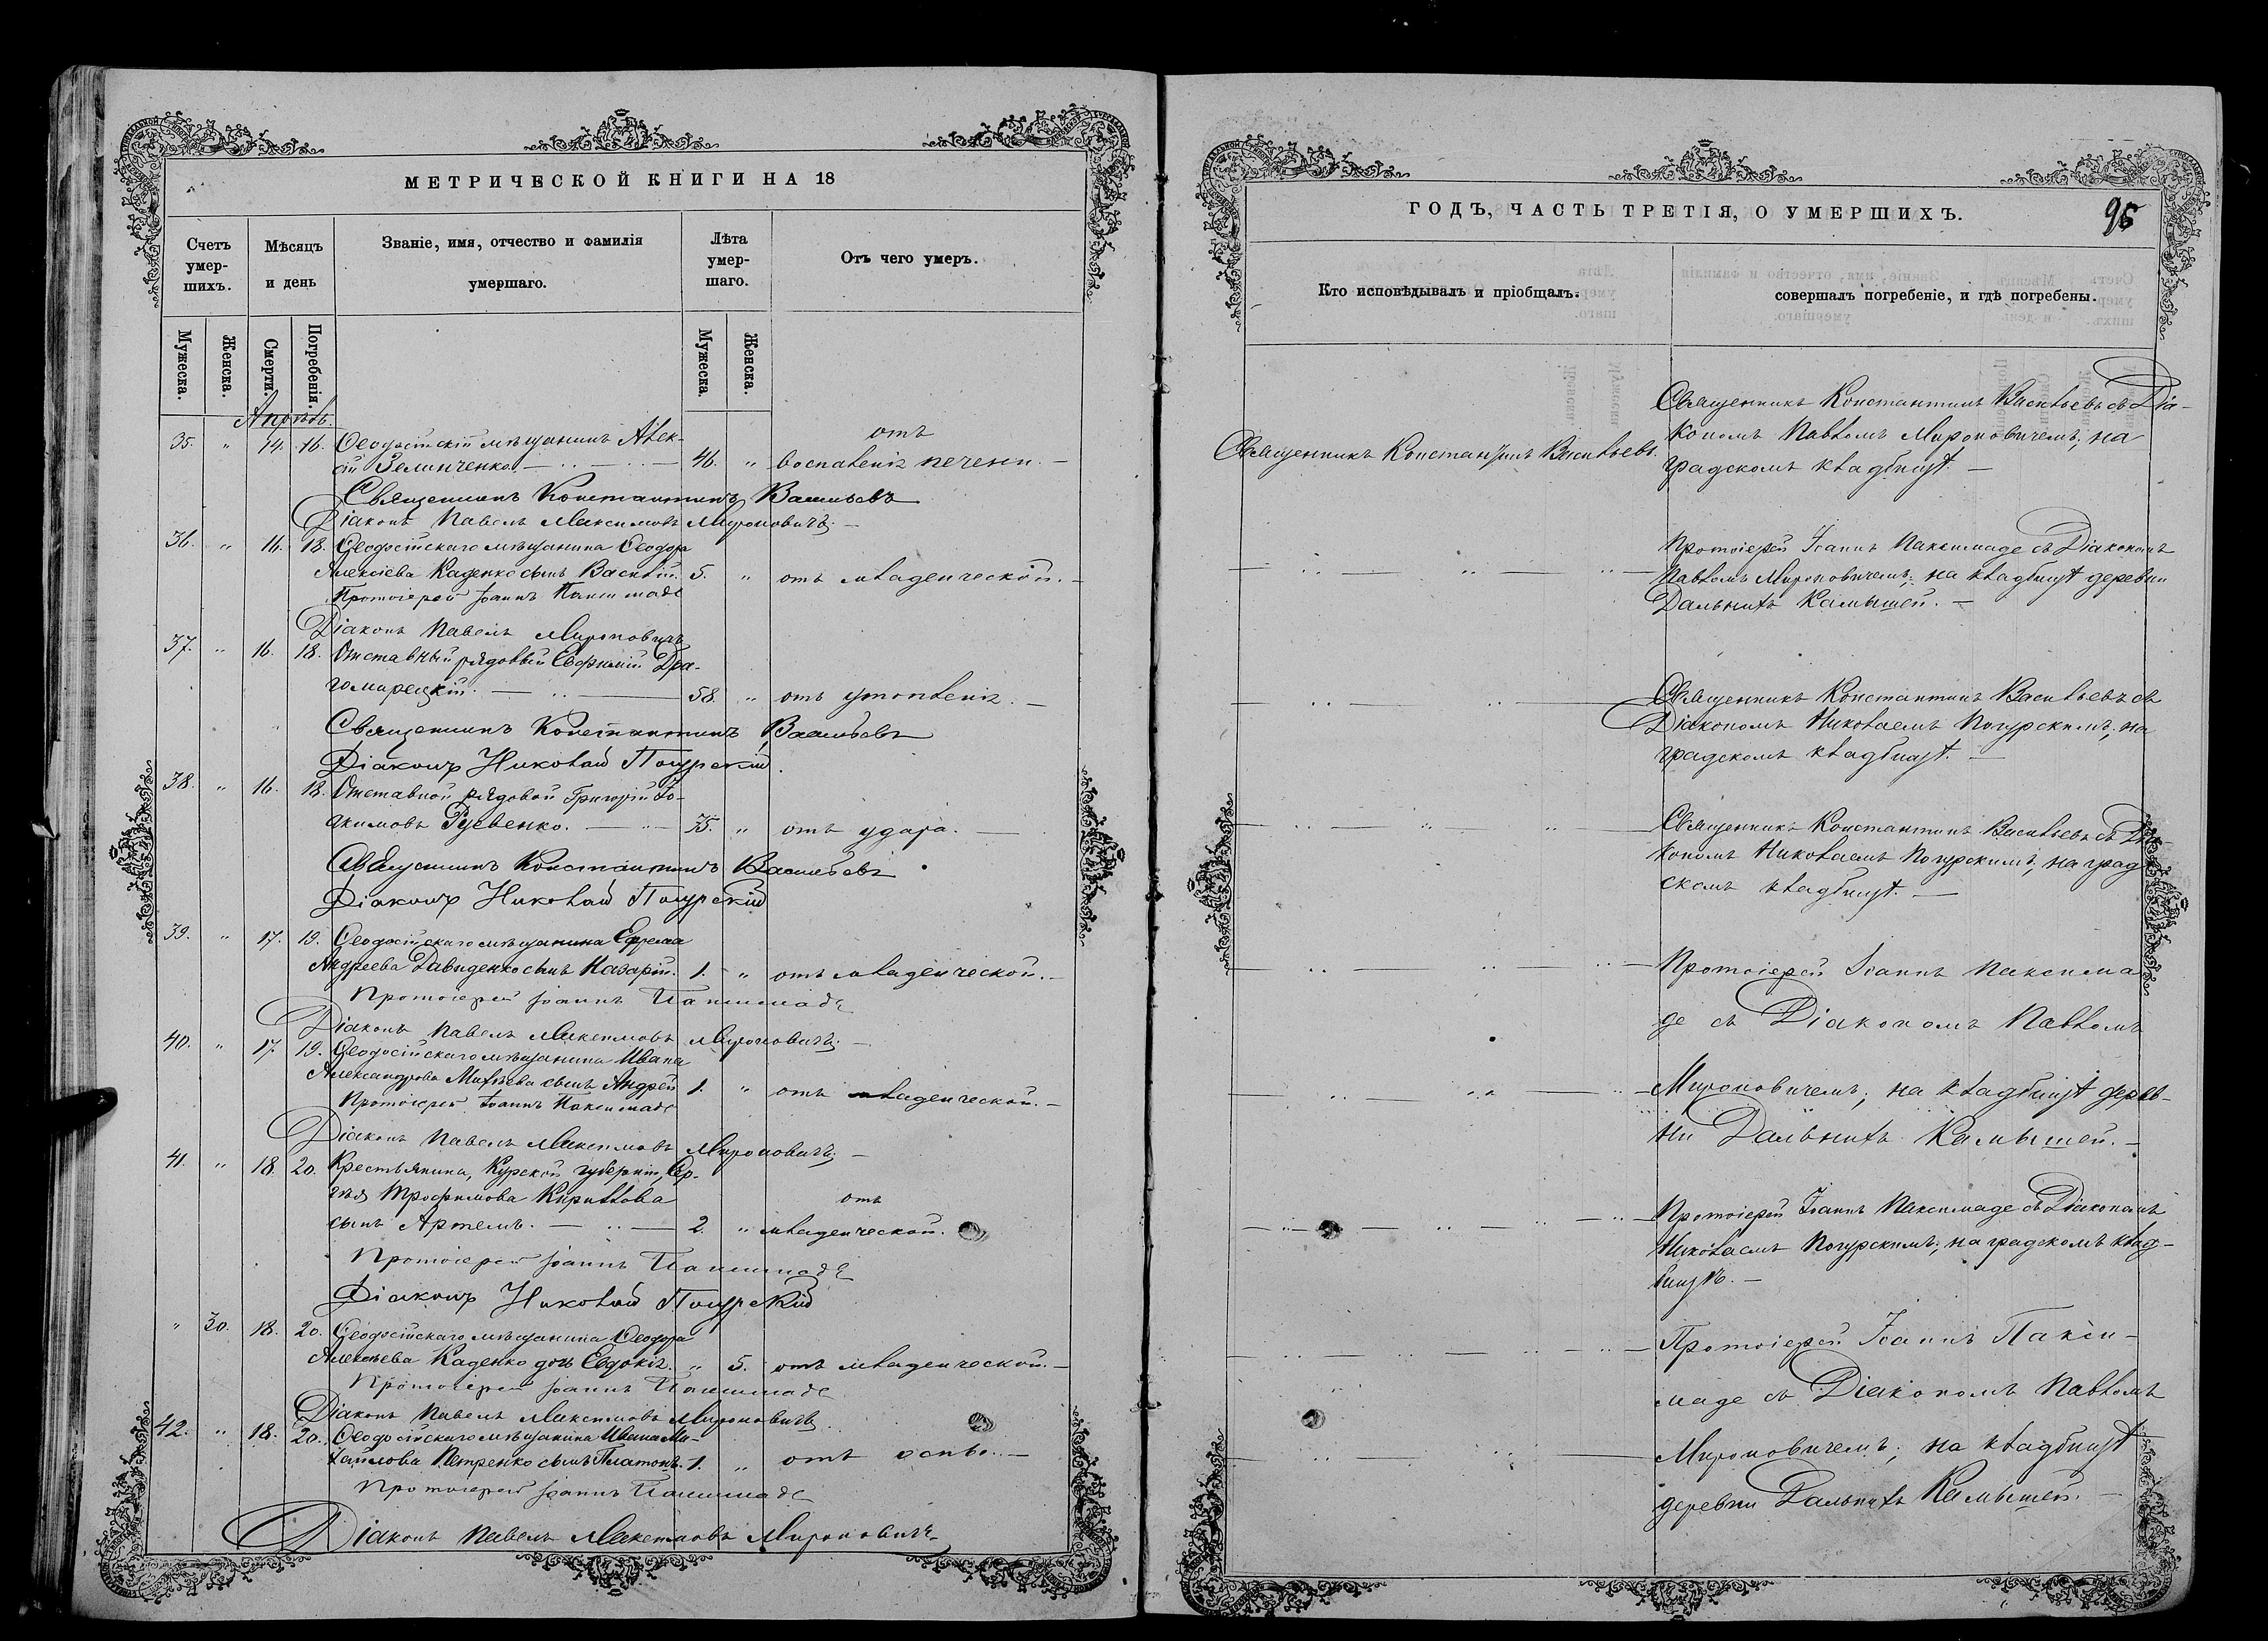 МЕТРИЧЕСКОЙ КНИГИ НА 18
Счетъ умер-шихъ.
Мѣсяцъ и день
Званіе, имя, отчество и фамилія умершаго.
Лѣта умер-шаго.
Отъ чего умеръ.
Мужеска.
Женска.
Смерти.
Погребенія.
Мужеска.
Женска.
Апрѣль.
35. " 14. 16. Ѳеодосійскій мѣщанинъ Алек-
сій Зелинченко. 46. " отъ воспаленія печени.
Священникъ Константинъ Васильевъ
Діаконъ Павелъ Максимовъ Мироновичъ.
36. " 16. 18. Ѳеодосійскаго мѣщанина Ѳеодора
Алексіева Каденко сынъ Василій. 5. " отъ младенческой.
Протоіерей Іоаннъ Паксимаде
Діаконъ Павелъ Мироновичъ
37. " 16. 18. Отставный рядовый Евфимій Дра-
гомирецкій. 58. " отъ утопленія.
Священникъ Константинъ Васильевъ
Діаконъ Николай Погурскій
38. " 16. 18. Отставной рядовой Григорій Іо-
акимовъ Руевенко. 35. " отъ удара.
Священникъ Константинъ Васильевъ
Діаконъ Николай Погурскій
39. " 17. 19. Ѳеодосійскаго мѣщанина Ефрема
Андреева Давиденко сынъ Назарій. 1. " отъ младенческой.
Протоіерей Іоаннъ Паксимаде
Діаконъ Павелъ Максимовъ Мироновичъ.
40. " 17. 19. Ѳеодосійскаго мѣщанина Ивана
Александрова Матвѣева сынъ Андрей 1. " отъ младенческой.
Протоіерей Іоаннъ Паксимаде
Діаконъ Павелъ Максимовъ Мироновичъ.
41. " 18. 20. Крестьянина, Курской губерніи, Сер-
гѣя Трофимова Кириллова
сынъ Артемъ. 2. " отъ младенческой.
Протоіерей Іоаннъ Паксимаде
Діаконъ Николай Погурскій
" 30. 18. 20. Ѳеодосійскаго мѣщанина Ѳеодора
Алексѣева Каденко дочь Евдокія. " 5. отъ младенческой.
Протоіерей Іоаннъ Паксимаде
Діаконъ Павелъ Максимовъ Мироновичъ.
42. " 18. 20. Ѳеодосійскаго мѣщанина Ивана Ми-
хайлова Петренко сынъ Платонъ. 1. " отъ оспы.
Протоіерей Іоаннъ Паксимаде
Діаконъ Павелъ Максимовъ Мироновичъ
ГОДЪ, ЧАСТЬ ТРЕТІЯ, О УМЕРШИХЪ.
95
Кто исповѣдывалъ и пріобщалъ.
совершалъ погребеніе, и гдѣ погребены.
Священникъ Константинъ Васильевъ.
Священникъ Константинъ Васильевъ съ Діа-
кономъ Павломъ Мироновичемъ; на
градскомъ кладбищѣ.
Протоіерей Іоаннъ Паксимаде съ Діакономъ
Павломъ Мироновичемъ; на кладбищѣ деревни
Дальнихъ Камышей.
Священникъ Константинъ Васильевъ съ
Діакономъ Николаемъ Погурскимъ; на
градскомъ кладбищѣ.
Священникъ Константинъ Васильевъ съ Діа-
кономъ Николаемъ Погурскимъ; на град-
скомъ кладбищѣ.
Протоіерей Іоаннъ Паксима-
де съ Діакономъ Павломъ
Мироновичемъ; на кладбищѣ дерев-
ни Дальнихъ Камышей.
Протоіерей Іоаннъ Паксимаде съ Діакономъ
Николаемъ Погурскимъ; на градскомъ клад-
бищѣ.
Протоіерей Іоаннъ Пакси-
маде съ Діакономъ Павломъ
Мироновичемъ; на кладбищѣ
деревни Дальнихъ Камышей.